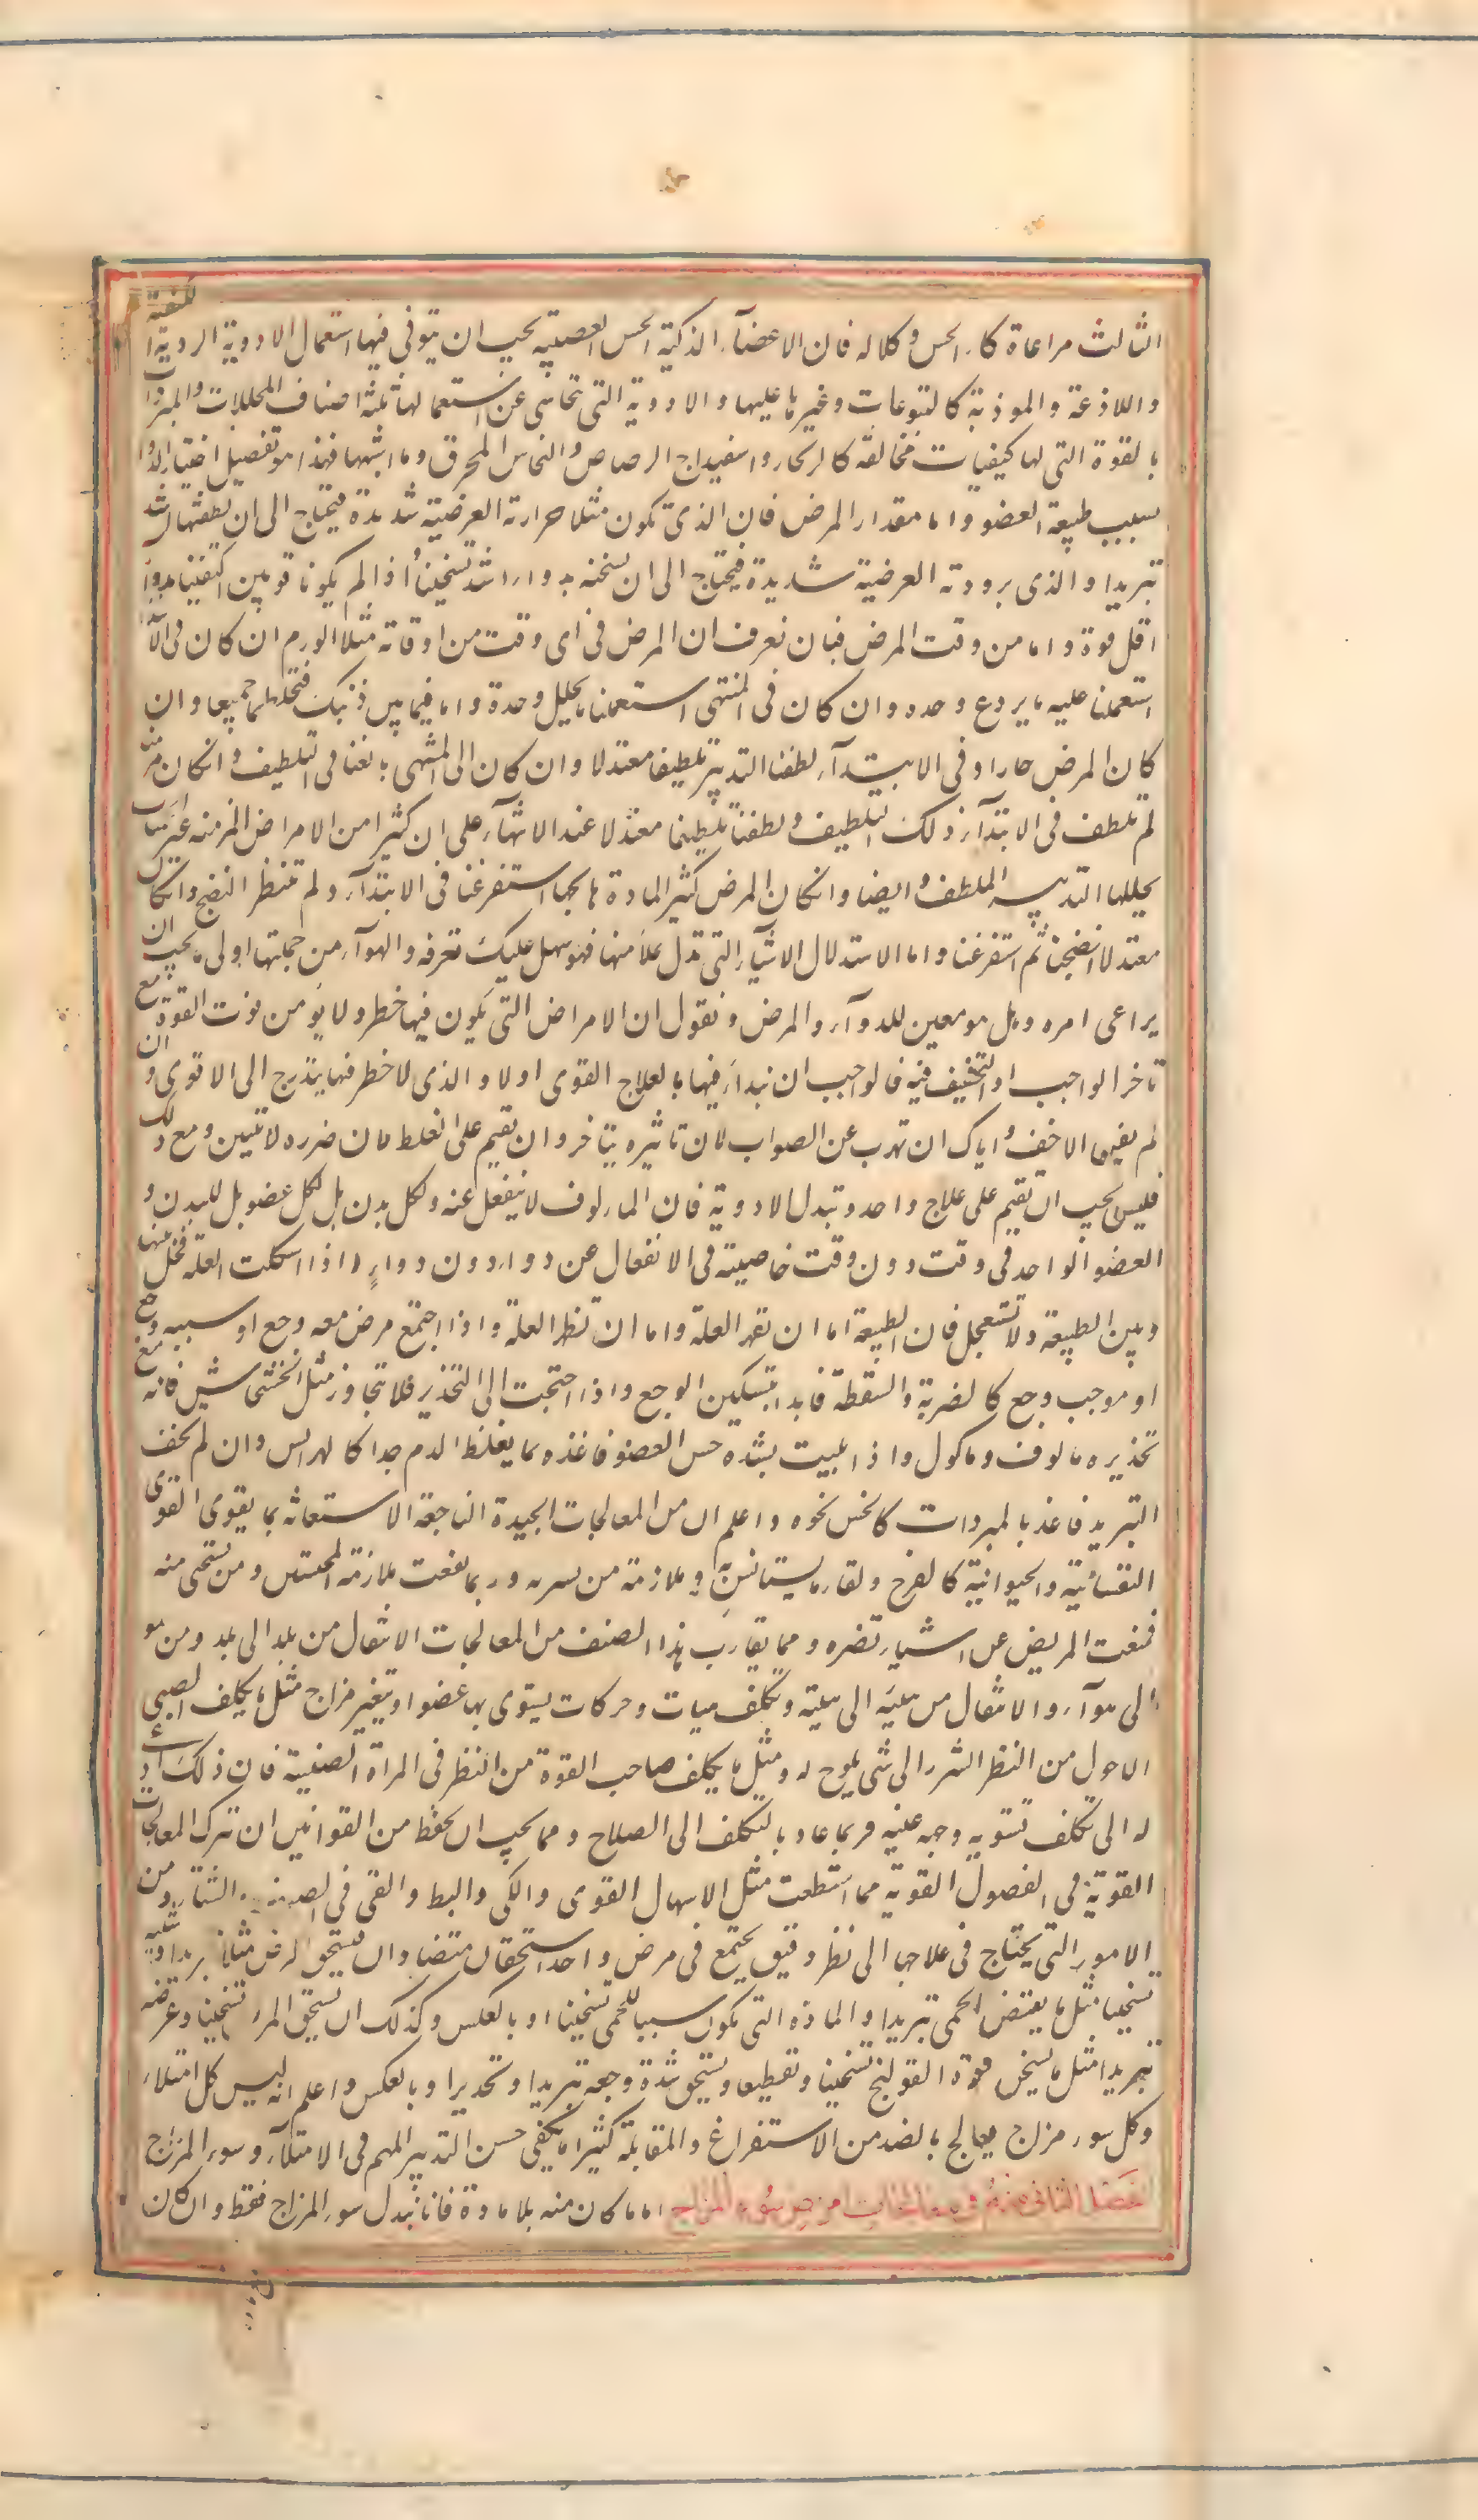 الثالث مراعاة ذكاء الحس وكلاله فان الاعضآء الذكية الحس العصبيه يجب ان يتوقى فيها استعمال الادوية الردية الكيفية
واللاذعة والموذية كاليتوعات وغيرها عليها والادوية التى تحاشى عن استعمالها ثلثة اصناف المحللات والمبردات
بالقوة التى لها كيفيات مخالفة كالزنجار واسفيداج الرصاص والنحاس المحرق وما اشبهها فهذا هو تفصيل اختيار الدوا
بسبب طبيعة العضو واما مقدار المرض فان الذى تكون مثلا حرارته العرضية شديدة فيحتاج الى ان يطفئها باشد
تبريدا والذى برودته العرضية شديدة فيحتاج الى ان يسخنه بدواء اشد تسخينا اذا لم يكونا قويين اكتفينا بدوآ
اقل قوة واما من وقت المرض فبان نعرف ان المرض فى اى وقت من اوقاته مثلا الورم ان كان فى الابتدا
استعملنا عليه ما يردع وحده وان كان فى المنتهى استعملنا ما يحلل وحدة واما فيما بين ذنيك فنخلطهما جميعا وان
كان المرض حارا وفى الابتدآء لطفنا التدبير تلطيفا معتدلا وان كان الى المنتهى بالغنا فى التلطيف وان كان مزمنا
لم نلطف فى الابتدآء ذلك التلطيف ولطفنا تلطيفا معتدلا عند الانتهآء على ان كثيرا من الامراض المزمنه غير الحميات
يحللها التدبير الملطف وايضا وان كان المرض كثير المادة هايجها استفرغنا فى الابتدآء ولم ننتظر النضج وان كان
معتدلا انضجنا ثم استفرغنا واما الاستدلال الاشيآء التى تدل بملآمنها فهو سهل عليك تعرفه والهوآء من جملتها اولى ما يجب ان
يراعى امره وهل هو معين للدوآء والمرض ونقول ان الامراض التى يكون فيها خطر ولا يومن فوت القوة مع
تاخر الواجب او التخفيف فيه فالواجب ان نبدأ فيها بالعلاج القوى اولا والذى لا خطر فيها يتدرج الى الاقوى وان
لم يغن الاخف واياك ان تهرب عن الصواب لان تاثيره يتاخر وان تقيم على الغلط لان ضرره لا يتبين ومع ذلك
فليس يجب ان تقيم على علاج واحد وتبدل الادوية فان المالوف لا ينفعل عنه ولكل بدن بل لكل عضو بل للبدن و
العضو الواحد فى وقت دون وقت خاصية فى الانفعال عن دواء دون دواءٍ واذا اشكلت العلة فخل بينها
وبين الطبيعة ولا تستعجل فان الطبيعة اما ان تقهر العلة واما ان تظهر العلة واذا اجتمع مرض معه وجع او سببه وجع
او موجب وجع كالضربة والسقطة فابدا بتسكين الوجع واذا احتجت الى التخذير فلا تتجاوز مثل الخشخاش فانه مع
تخذيره مالوف وماكول واذا بليت بشدة حس العضو فاغذه بما يغلظ الدم جدا كالهرايس وان لم يخف
التبريد فاغذ بالمبردات كالخس نحوه واعلم ان من المعالجات الجيدة الناجعة الاستعانه بما يقوى القوى
النفسانية والحيوانية كالفرح ولقاء ما يستانس به وملازمة من يسره وربما نفعت ملازمة المحتشمين ومن يستحى منه
فمنعت المريض عن اشياء تضره ومما يقارب هذا الصنف من المعالجات الانتقال من بلد الى بلد ومن هوآ
الى هوآء والانتقال من هيئة الى هيئة وتكلف هيات وحركات يستوى بها عضو او يتغير مزاج مثل ما يكلف الصبى
الاحول من النظر الشزر الى شى يلوح له ومثل ما يكلف صاحب القوة من النظر فى المراة الصينية فان ذلك ادعى
له الى تكلف تسويه وجهه وعينيه فربما عاد بالتكلف الى الصلاح ومما يجب ان تحفظ من القوانين ان تترك المعالجات
القوية فى الفصول القوية مما استطعت مثل الاسهال القوى والكى والبط والقى فى الصيف والشتاء ومن
الامور التى يحتاج فى علاجها الى نظر دقيق يجتمع فى مرض واحد استحقاق متضادان فيستحق المرض مثلا تبريدا وسببه
تسخينا مثل ما يقتضى الحمى تبريدا والماده التى تكون سببا للحمى تسخينا او بالعكس وكذلك ان يستحق المرض تسخينا وعرضه
تبريدا مثل ما يستحق مادة القولنج تسخينا وتقطيعا ويستحق شدة وجعه تبريدا وتخديرا وبالعكس واعلم انه ليس كل امتلاء
وكل سوء مزاج يعالج بالضد من الاستفراغ والمقابلة كثيرا ما يكفى حسن التدبير المهم فى الامتلآء وسوء المزاج
الفصل الثانى فى معالجات امراض سوء المزاج اما ما كان منه بلا مادة فانا نبدل سوء المزاج فقط وان كان